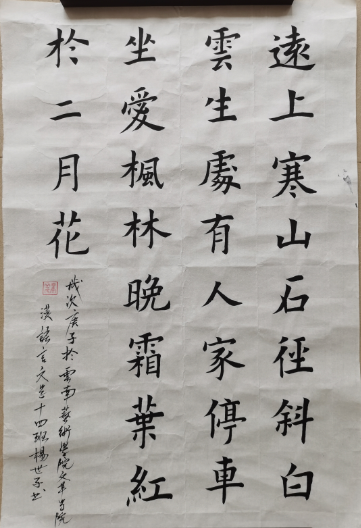 遠上寒山石徑斜白
雲生處有人家停車
坐愛楓林晚霜葉紅
於二月花
歲次庚子於雲南藝術學院文華學院
漢語言文學十四班楊世